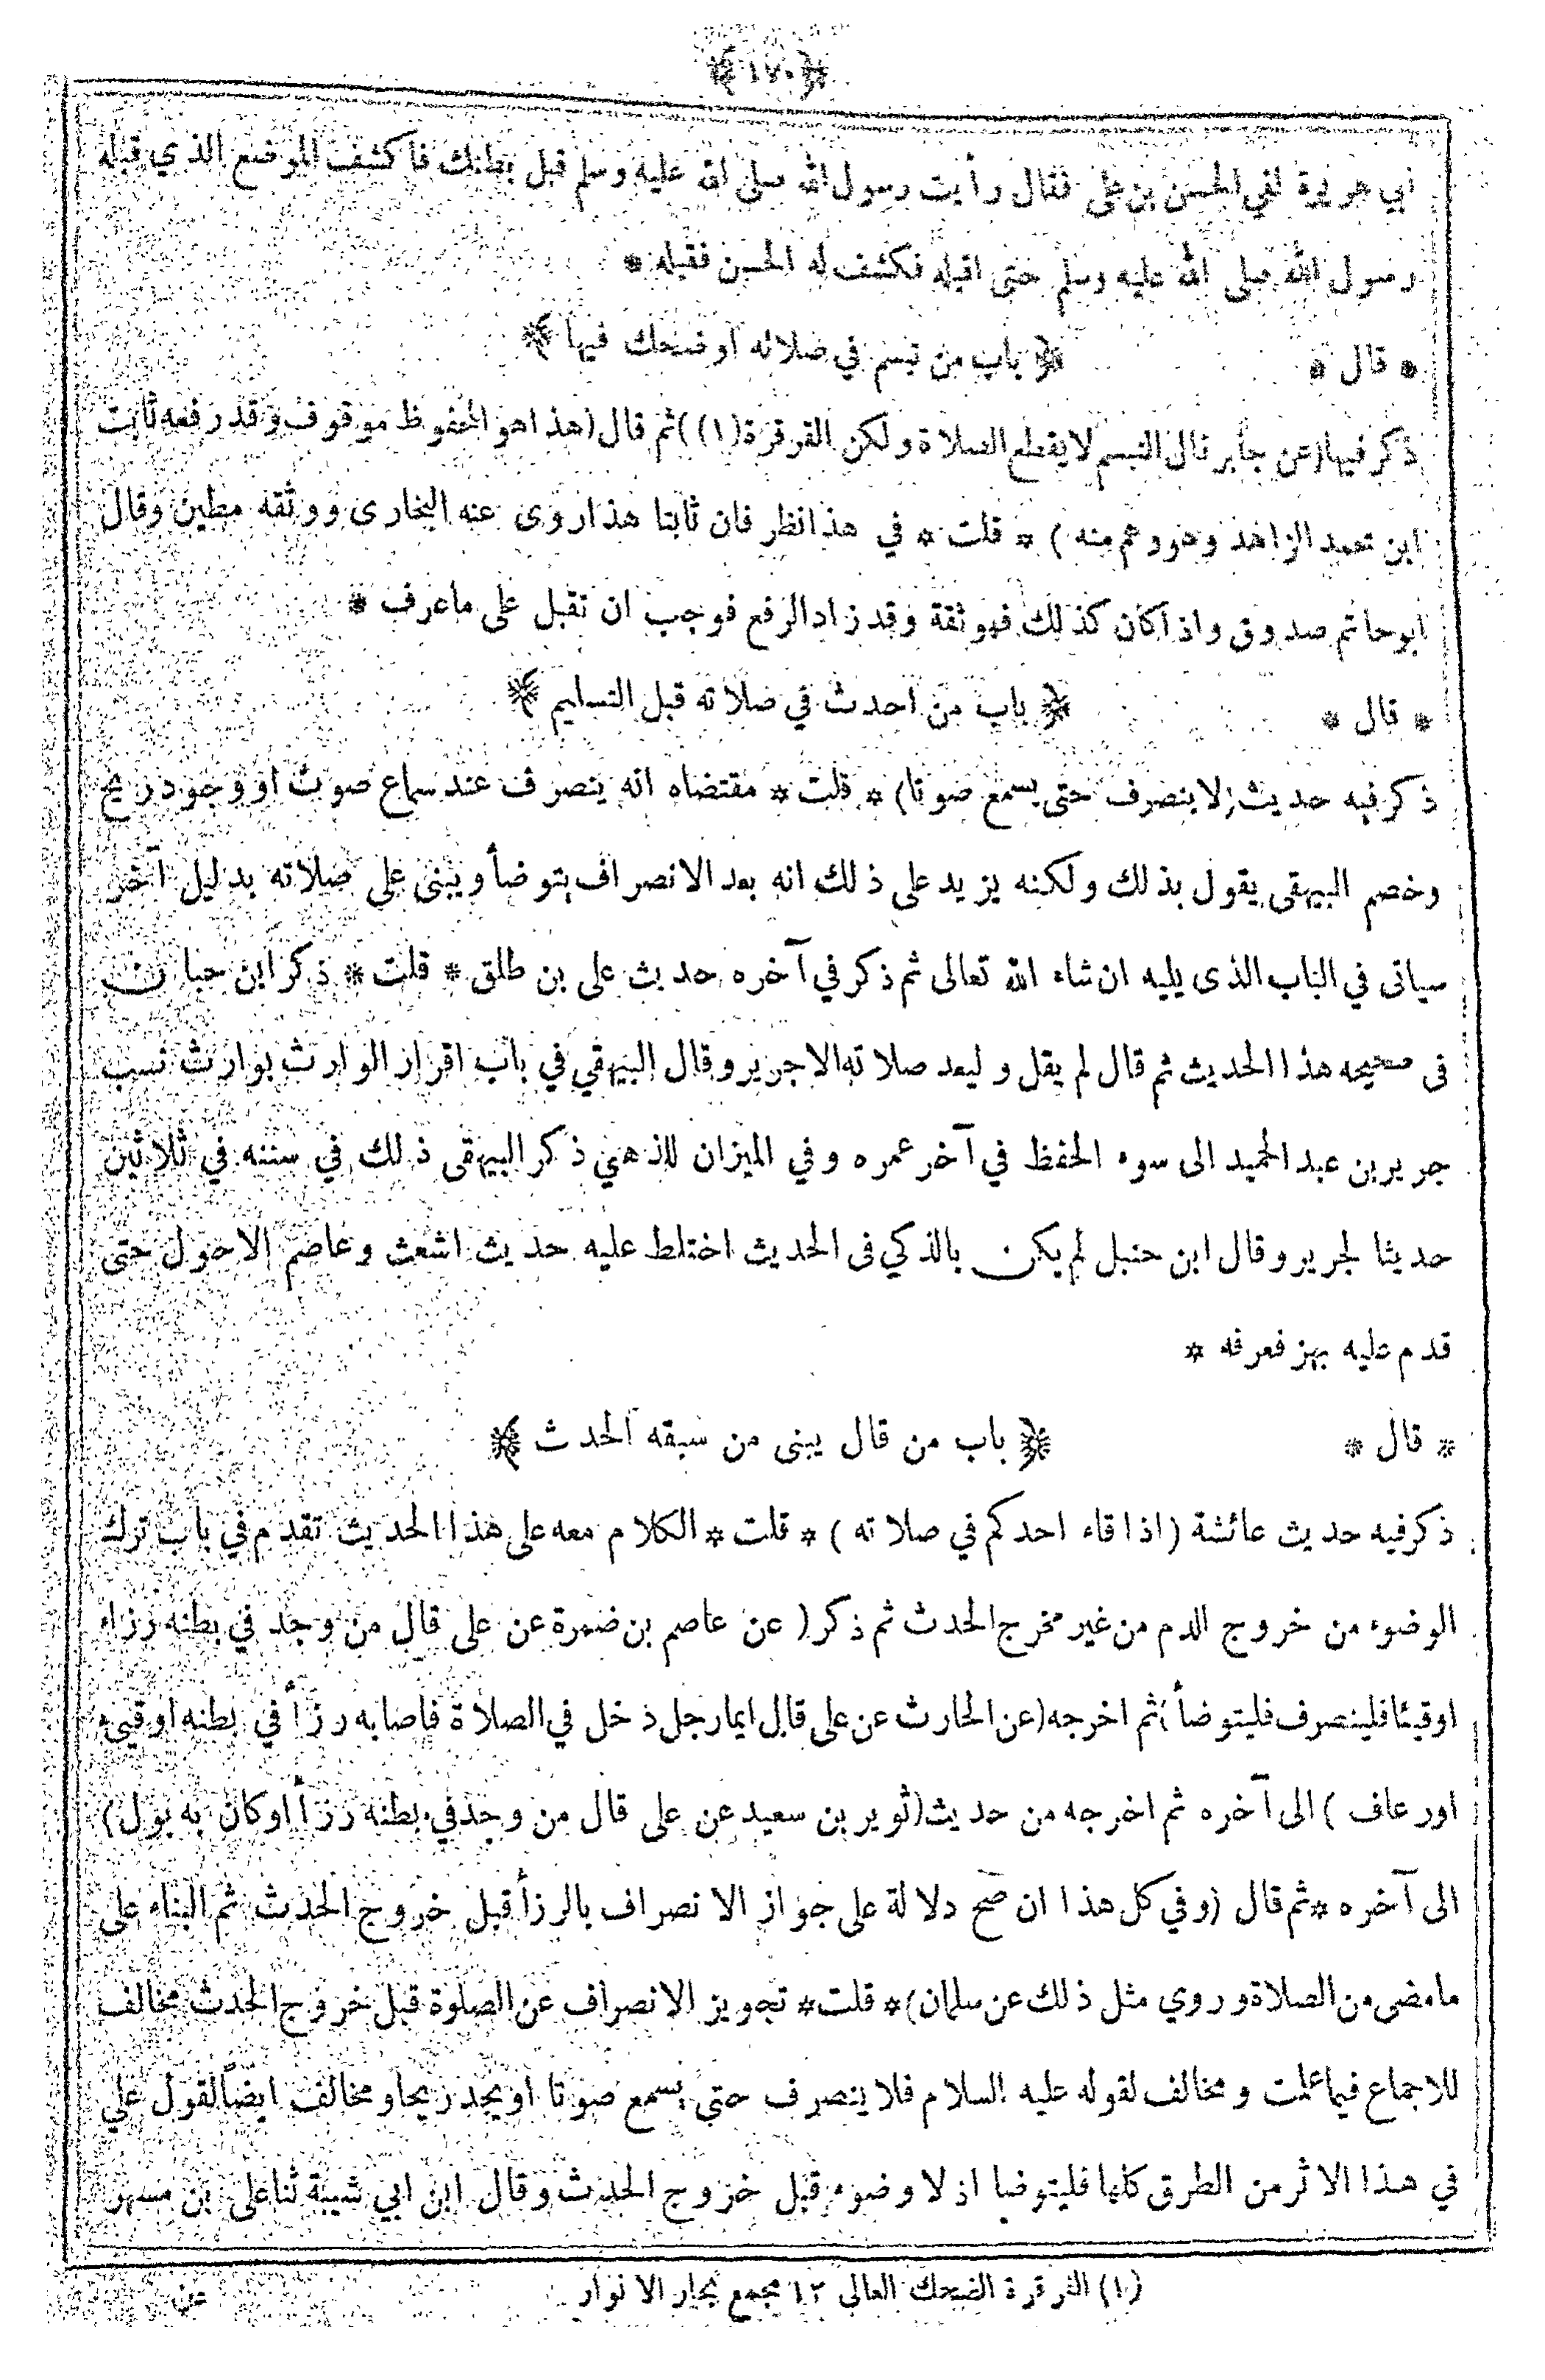 ﴿١٧٠﴾
ابي هريرة لقي الحسن بن على فقال رأيت رسول الله صلى الله عليه وسلم قبل بطنك فاكشف الموضع الذي قبله
رسول الله صلى الله عليه وسلم حتى اقبله فكشف له الحسن فقبله *
* قال * ﴿ باب من تبسم في صلاته او ضحك فيها ﴾
ذكر فيها (عن جابر قال التبسم لا يقطع الصلاة ولكن القرقرة (١)) ثم قال (هذا هو المحفوظ موقوف وقد رفعه ثابت
ابن محمد الزاهد وهو وهم منه ) * قلت * في هذا نظر فان ثابتا هذا روى عنه البخارى ووثقه مطين وقال
ابو حاتم صدوق واذا كان كذلك فهو ثقة وقد زاد الرفع فوجب ان تقبل على ما عرف *
* قال * ﴿ باب من احدث في صلاته قبل التسليم ﴾
ذكر فيه حديث (لا ينصرف حتى يسمع صوتا) * قلت * مقتضاه انه ينصرف عند سماع صوت او وجود ريح
وخصم البيهقى يقول بذلك ولكنه يزيد على ذلك انه بعد الانصراف يتوضأ ويبنى على صلاته بدليل آخر
سياتى في الباب الذى يليه ان شاء الله تعالى ثم ذكر في آخره حديث على بن طلق * قلت * ذكر ابن حبان
فى صحيحه هذا الحديث ثم قال لم يقل وليعد صلاته الا جرير وقال البيهقي في باب اقرار الوارث بوارث نسب
جرير بن عبد الحميد الى سوء الحفظ في آخر عمره وفي الميزان للذهبي ذكر البيهقى ذلك في سننه في ثلاثين
حديثا لجرير وقال ابن حنبل لم يكن بالذكي فى الحديث اختلط عليه حديث اشعث وعاصم الاحول حتى
قدم عليه بهز فعرفه *
* قال * ﴿ باب من قال يبنى من سبقه الحدث ﴾
ذكر فيه حديث عائشة (اذا قاء احدكم في صلاته ) * قلت * الكلام معه على هذا الحديث تقدم في باب ترك
الوضوء من خروج الدم من غير مخرج الحدث ثم ذكر ( عن عاصم بن ضمرة عن على قال من وجد في بطنه رزاء
او قيئا فلينصرف فليتوضأ) ثم اخرجه (عن الحارث عن على قال ايما رجل دخل في الصلاة فاصابه رزأ في بطنه او قيئ
او رعاف ) الى آخره ثم اخرجه من حديث (ثوير بن سعيد عن على قال من وجد في بطنه رزأ او كان به بول)
الى آخره * ثم قال (وفي كل هذا ان صح دلالة على جواز الانصراف بالرزأ قبل خروج الحدث ثم البناء على
ما مضى من الصلاة وروي مثل ذلك عن سلمان) * قلت * تجويز الانصراف عن الصلوة قبل خروج الحدث مخالف
للاجماع فيما علمت ومخالف لقوله عليه السلام فلا ينصرف حتى يسمع صوتا او يجد ريحا ومخالف ايضاً لقول علي
في هذا الاثر من الطرق كلها فليتوضا اذ لا وضوء قبل خروج الحدث وقال ابن ابي شيبة ثنا على بن مسهر
(١) القرقرة الضحك العالى ١٢ مجمع بحار الانوار
عن